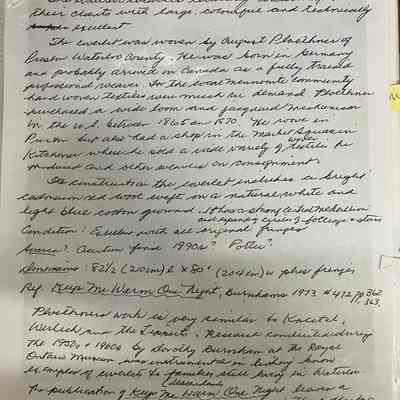 their clients with large, colourful and technically
excellent.
The coverlet was woven by August Ploethner of
Preston Waterloo County. He was born in Germany
and probably arrived in Canada as a fully trained
professional weaver. For the local Mennonite community
hand woven textiles were much in demand. Ploethner
purchased a wide loom and jacquard mechanism
in the U.S. between 1865 and 1870. He wove in
Preston but also had a shop in the Market Square in
Kitchener where he sold a wide variety of textiles he
produced and other weavers on consignment.
In construction the coverlet includes a bright
red wool weft on a natural white and
light blue cotton ground. It has a strong central medallion
and repeating cycles of foliage & stars
Condition: Excellent with all original fringes
Source?. Auction find 1990s? Potter?
Dimensions: 82 1/2 (210cm) l x 80" (204cm) w plus fringes
Ref. Keep Me Warm One Night, Burnhams 1973 #472, pp 362
363.
Ploethners work is very similar to
and the . Research conducted during
the 1950s & 1960s by Dorothy Burnham at the Royal
Ontario Museum was instrumental in
of coverlets to families still living in Waterloo
(descendants
The publication of Keep Me Warm One Night